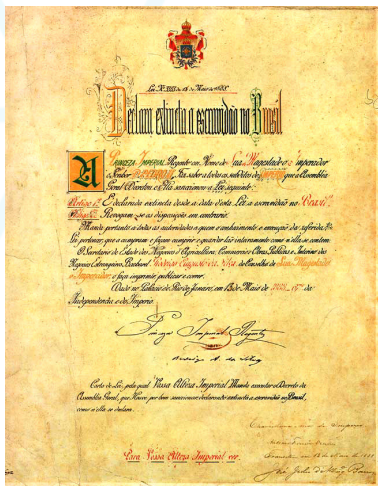 Lei Nº 3353 de 13 de Maio de 1888.
Declara extincta a escravidão no Brasil
A PRINCEZA IMPERIAL Regente em Nome de Sua Magestade o Imperador
o Senhor D. PEDRO II Faz saber a todos os subditos do IMPERIO que a Assembléa
Geral Decretou e Ella sanccionou a Lei seguinte:
Artigo 1º É declarada extincta desde a data d'esta Lei a escravidão no Brazil
Artigo 2º Revogam-se as disposições em contrario.
Manda portanto a todas as autoridades a quem o conhecimento e execução da referida
Lei pertencer, que a cumpram e façam cumprir e guardar tão inteiramente como n'ella se contem.
O Secretario de Estado dos Negocios d'Agricultura, Commercio e Obras Publicas e Interino dos
Negocios Estrangeiros, Bacharel Rodrigo Augusto da Silva do Conselho de Sua Magestade
o Imperador, o faça imprimir publicar e correr.
Dado no Palacio do Rio de Janeiro, em 13 de Maio de 1888, 67º da
Independencia e do Imperio.
Princeza Imperial Regente
Rodrigo A. da Silva
Carta de Lei, pela qual Vossa Alteza Imperial Manda executar o Decreto da
Assembléa Geral, que Houve por bem sanccionar declarando extincta a escravidão no Brasil,
como n'ella se declara.
Para Vossa Alteza Imperial ver.